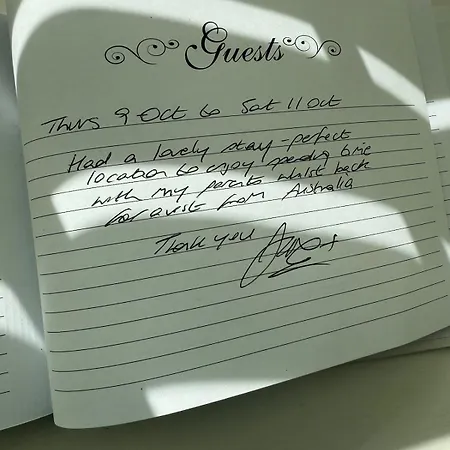 Guests
Thurs 9 Oct to Sat 11 Oct
Had a lovely stay - perfect
location to enjoy spending time
with my parents whilst back
for a visit from Australia
Thank you